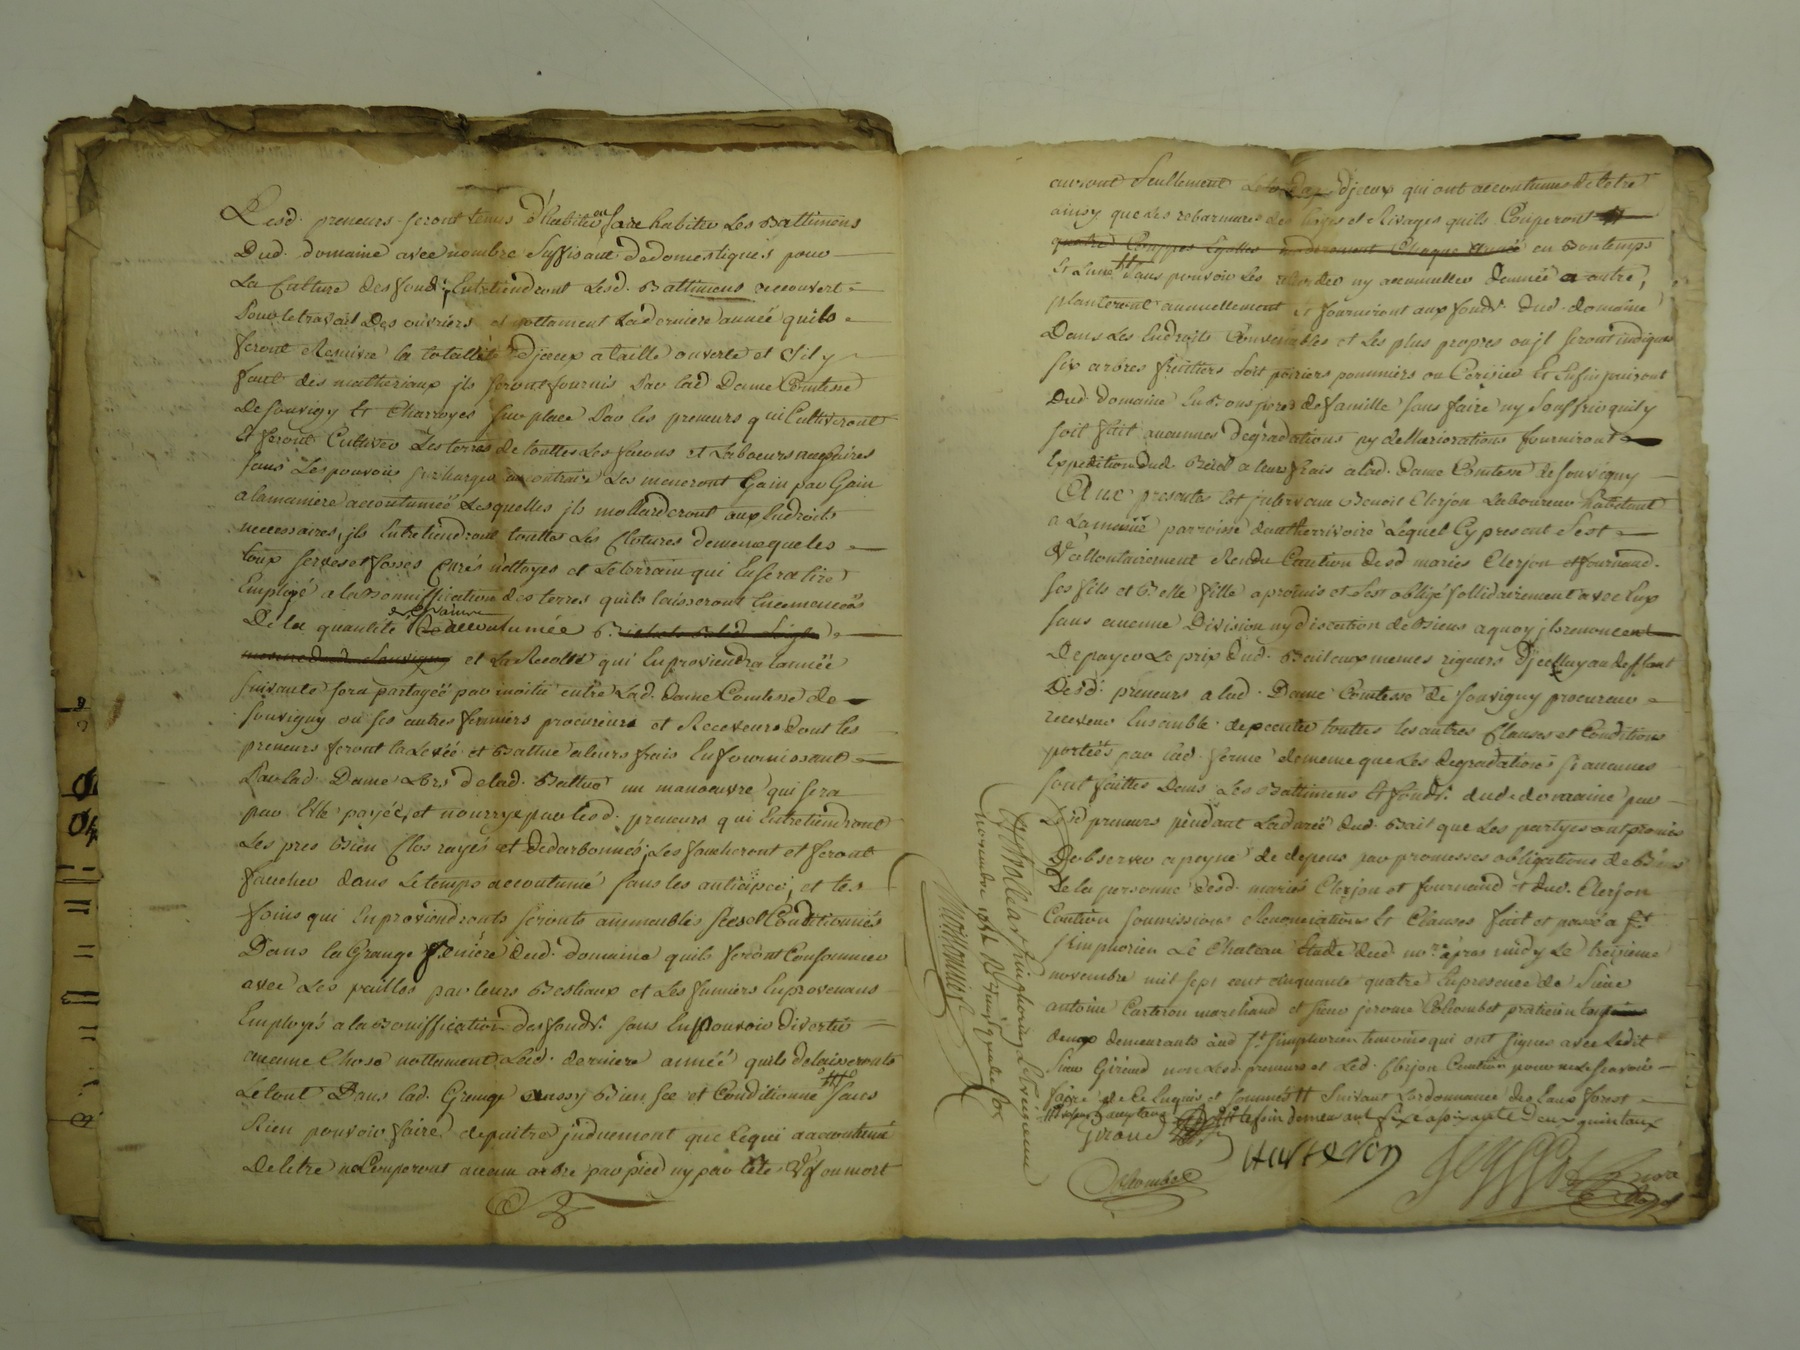 Lesd. preneurs seront tenus d'habiter ou faire habiter Les Battimens
Dud. domaine avec nombre Suffisant de domestiques pour
La Culture des fonds, Entretiendront Lesd. Battimens recouvert
Pour le travail Des ouvriers et nottament Lad. derniere année quils
feront Resuivre la totallité d'jceux a taille ouverte et s'il y
faut des matheriaux jls seront fournis Par lad Dame Comtesse
De Souvigny Et Charroyes sur place Par les preneurs qui Cultiveront
Et feront Cultiver Les terres de touttes Les façons et Labeurs necessaires
sans Les pouvoir surcharger au contraire Les meneront Gain par Gain
a la maniere accoutumée Lesquelles jls mollarderont aux Endroits
necessaires, jls Entretiendront touttes Les Clotures de meme que les
serves et fossés Curés nettoyes et Le terrain qui En sera tiré
Employé a la Bonniffication des terres quils laisseront Encemencées
De la quantité accoutumée
et La Recolte qui En proviendra l'année
suivante sera partagée par moitié entre Lad. Dame Comtesse de
Souvigny ou ses autres fermiers procureurs et Receveurs Dont les
preneurs feront la Levée et Battue a leurs frais En fournissant
Par lad. Dame Lors de lad. Battue un manoeuvre qui sera
par Elle payée, et nourry par lesd. preneurs qui Entretiendront
Les pres Bien Clos rayés et dedarbonnés, Les faucheront et feront
faucher dans Le temps accoutumé sans les anticiper, et les
foins qui En proviendronts seronts ammeublés secs et Conditionnés
Dans la Grange feniere dud. domaine quils feront Consommer
avec Les pailles par leurs Bestiaux et Les fumiers En provenans
Employés a la Boniffication des fonds sans En pouvoir divertir
aucune Chose nottament Lad. derniere année quils delaisseronts
Le tout Dans lad. Grange aussy Bien sec et Conditionné sans
Rien pouvoir faire depaitre judument que ce qui a accoutumé
De L'etre ne Couperont aucun arbre par pied ny par tête vif ou mort
auront Seullement d'jceux qui ont accoutumés de l'etre
ainsy que Les rebarmures des hayes et Rivages quils Couperont
en Bon temps
Et Lune sans pouvoir Les retarder ny accumuller d'année a autre,
planteront annuellement et fourniront aux fonds dud. domaine
Dans Les Endroits Convenables et Les plus propres ou jl seront indiqués
six arbres fruitiers soit poiriers pommiers ou Cerisier Et Enfin jouiront
Dud domaine En Bons peres de famille sans faire ny Souffrir quil y
soit fait aucunes Degradations ny detteriorations fourniront
Expedition dud. Bail a leurs frais a lad. dame Comtesse de Souvigny
Aux presentes Est jntervenu Benoit Clerjon Laboureur habitant
a parroisse Lequel Cy present s'est
Vollontairement Rendu Caution desd mariés Clerjon et fournand
ses fils et Belle fille a promis et s'est obligé sollidairement avec Eux
sans aucune Division ny discution de Biens a quoy jls renoncent
De payer Le prix dud. Bail aux memes rigeurs d'jcelluy au deffaut
Desd. preneurs a lad. Dame Comtesse de Souvigny procureur
receveur Ensemble d'executer touttes les autres Clauses et Conditions
portées par lad. ferme de meme que Les degradations si aucunes
sont faittes Dans Les Battimens Et fonds dud. domaine par
Lesd preneurs pendant La durée dud. Bail que Les partyes ont promis
D'observer a peyne de depens par promesses obligations de Biens
De la personne desd. mariés Clerjon et fournand et dud. Clerjon
Caution soumissions Renonciations Et Clauses fait et passé a St
simphorien Le Chateau Etude dud no.re apres midy Le treizieme
novembre mil sept cent cinquante quatre En presence de Sieur
antoine Carteron marchand et Sieur jerome Colombet praticien
deux demeurants aud St. Simphorien temoins qui ont signes avec Ledit
Sieur Giroud non Lesd. preneurs et Led. Clerjon Caution pour ne le scavoir
faire de ce Enquis et sommés Suivant L'ordonnance des Eaux forest
Le foin demeurant fixé a soixante Deux quintaux
Giroud
Carteron
Colombet
Controllé a St simphorien Le treizieme
novembre 1754